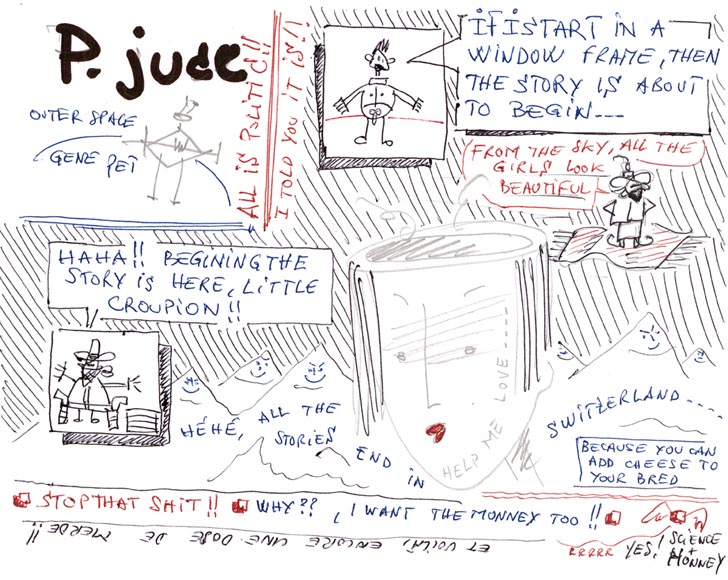 P. jude
ALL IS POLITIC!!
I TOLD YOU IT IS!!
IF I START IN A
WINDOW FRAME, THEN
THE STORY IS ABOUT
TO BEGIN---
OUTER SPACE
GENE PET
FROM THE SKY, ALL THE
GIRLS LOOK
BEAUTIFUL
HAHA!! BEGINING THE
STORY IS HERE, LITTLE
CROUPION!!
HÉHÉ, ALL THE
STORIES
END IN
HELP ME LOVE----
SWITZERLAND----
BECAUSE YOU CAN
ADD CHEESE TO
YOUR BRED
STOP THAT SHIT!! WHY??, I WANT THE MONNEY TOO!!
RRRRR YES, SCIENCE
+
MONNEY
ET VOILÀ, ENCORE UNE DOSE DE MERDE!!